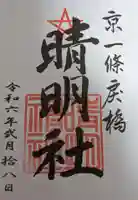 京一條戻橋
晴明社
令和六年弐月拾八日